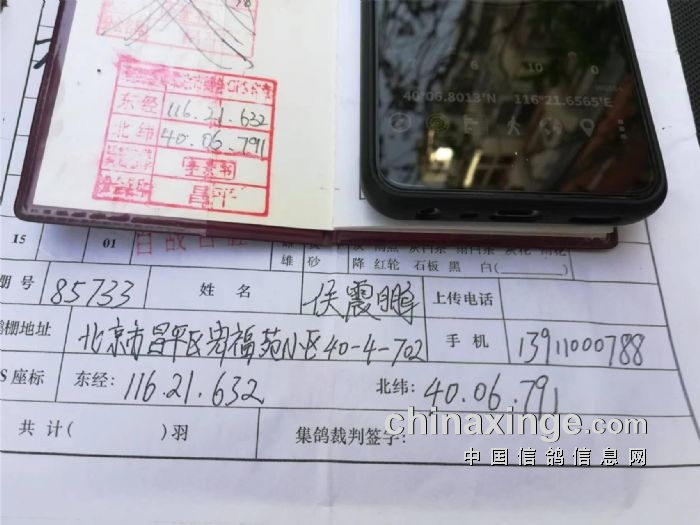 东经 116.21.632
北纬 40.06.791
昌平
40°06.8013'N 116°21.6565'E
15 01
雄 砂 降 红轮 石板 黑 白(
棚号 85733 姓名 侯霞鹏 上传电话
鸽棚地址 北京市昌平区 福苑小区40-4-702 手机 13911000788
S座标 东经: 116.21.632 北纬: 40.06.791
共 计( )羽 集鸽裁判签字:
chinaxinge.com
中国信鸽信息网